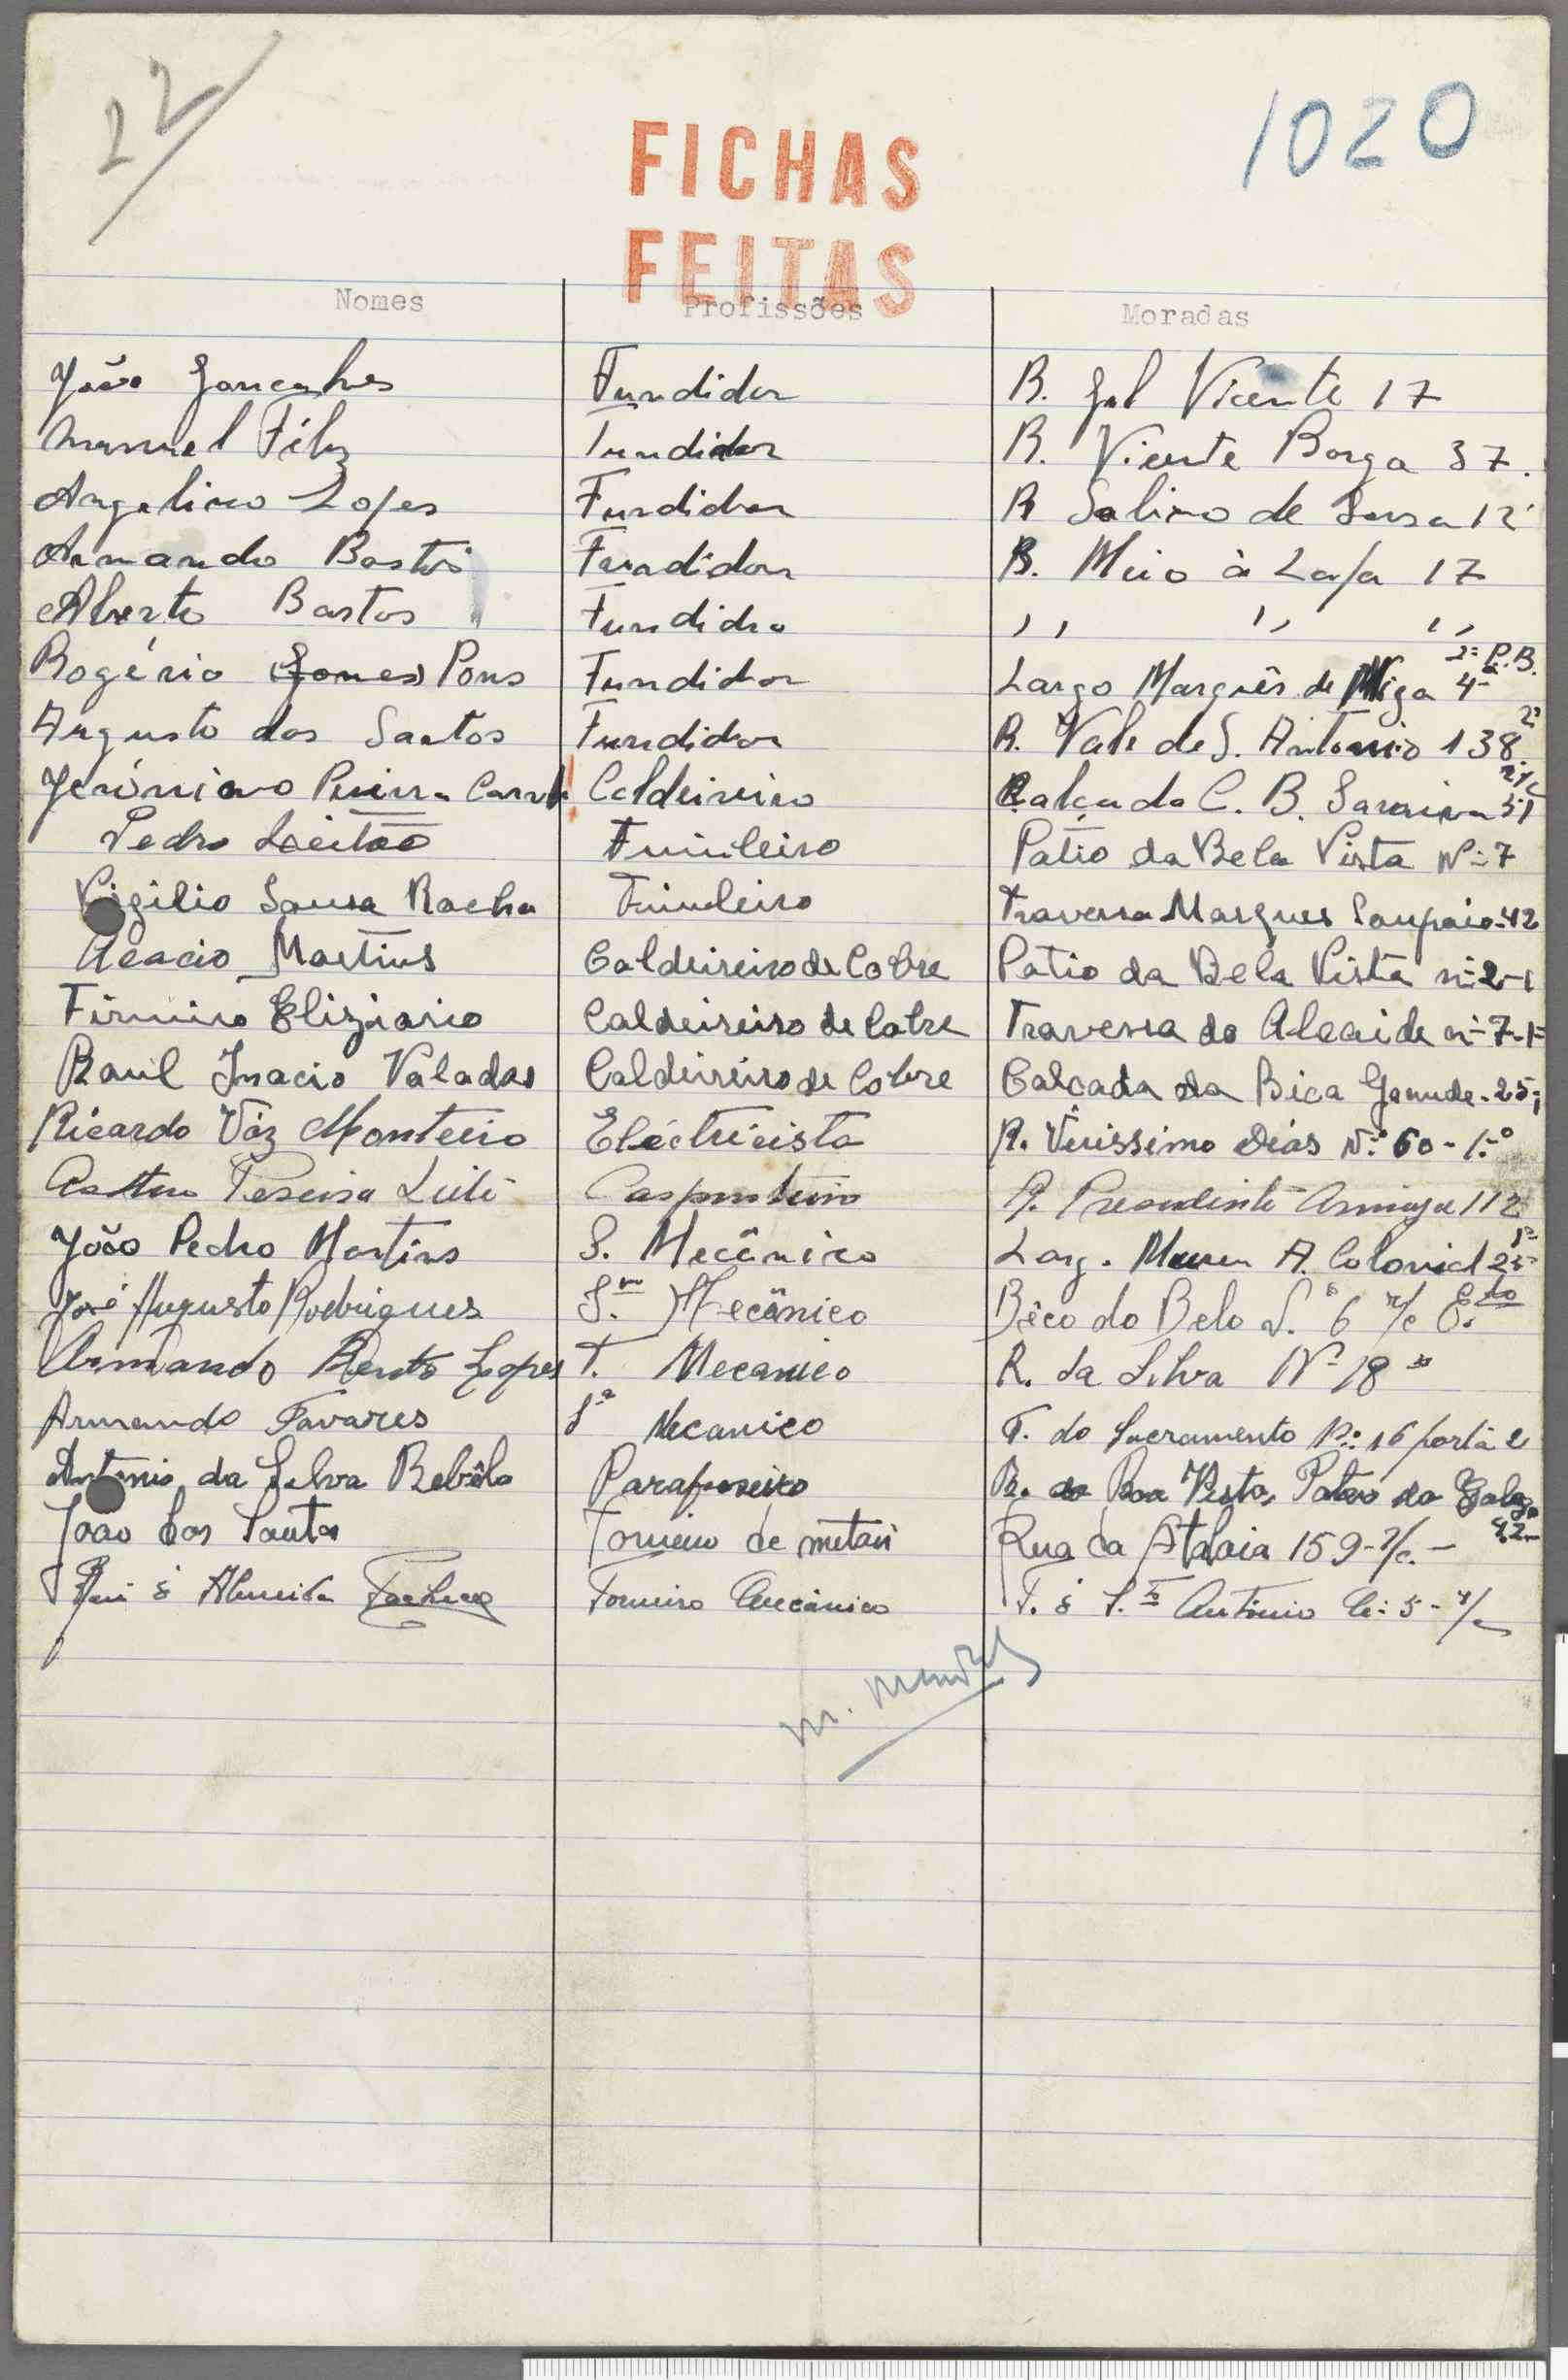 22
1020
FICHAS
FEITAS
Nomes Profissões Moradas
João Gonçalves Fundidor R. Gil Vicente 17
Manuel Féliz Fundidor R. Vicente Borga 37.
Angelino Lopes Fundidor R Sabino de Sousa 12
Armando Bastos Fundidor R. Meio à Lapa 17
Alberto Bastos Fundidor ,, ,, ,,
Rogério Gomes Pons Fundidor Largo Marquês de Niza 4 2º P.B.
Augusto dos Santos Fundidor R. Vale de S. Antonio 138. 2º
Jerónimo Caldeireiro Calçada C. B. Saraiva 51 r/c
Pedro Leitão Funileiro Patio da Bela Vista Nº 7
Vigilio Sousa Rocha Funileiro Travessa Marques Sampaio-42
Acacio Martins Caldeireiro de Cobre Patio da Bela Vista nº 2-1
Firmino Eliziario Caldeireiro de Cobre Travessa do Alcaide nº 7-1º
Raul Inacio Valadas Caldeireiro de Cobre Calcada da Bica Grande-25,
Ricardo Váz Monteiro Eléctricista R. Virissimo Dias Nº 60-1.º
Pereira Leite Carpinteiro R. Presidente Arriaga 112
João Pedro Martins S. Mecânico Larg. A. Colonial 25
José Augusto Rodrigues S. Mecânico Bêco do Belo 6 r/c E.do
Armando Bento Lopes T. Mecanico R. da Silva Nº 18
Armando Tavares Mecanico T. do Sacramento Nº 16 porta 2
Antonio da Silva Rebôlo Parafuseiro R. Boa Vista, Patio do Galego 42
Joao dos Santos Torneiro de metais Rua da Atalaia 159-r/c.-
Rui d' Almeida Pacheco Torneiro Mecânico T. d S.to António Nº 5-r/c
M. Mendes